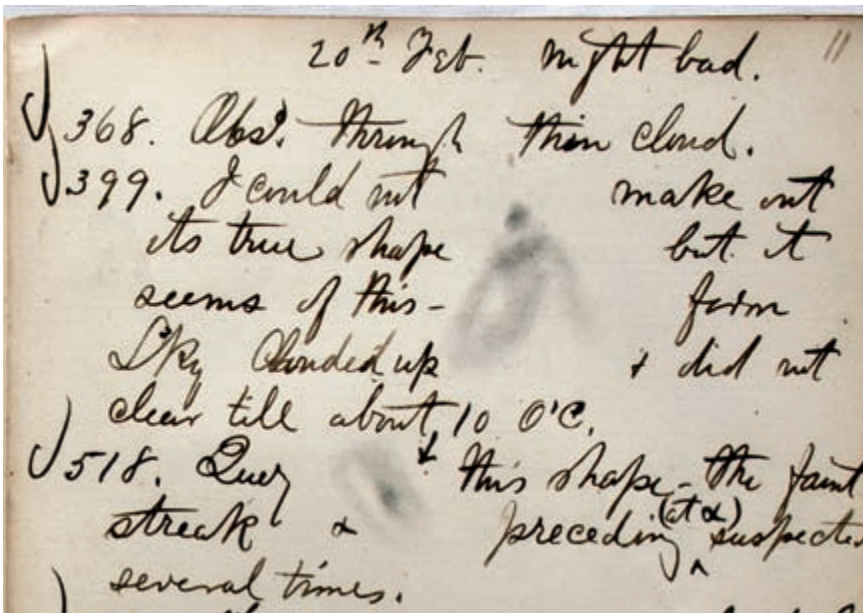 20th Feb. night bad. 11
368. Obsd. through thin cloud.
399. I could not make out
its true shape but it
seems of this - form
Sky clouded up & did not
clear till about 10 O'C.
518. Query this shape - the faint
streak α preceding (at α) suspected
several times.